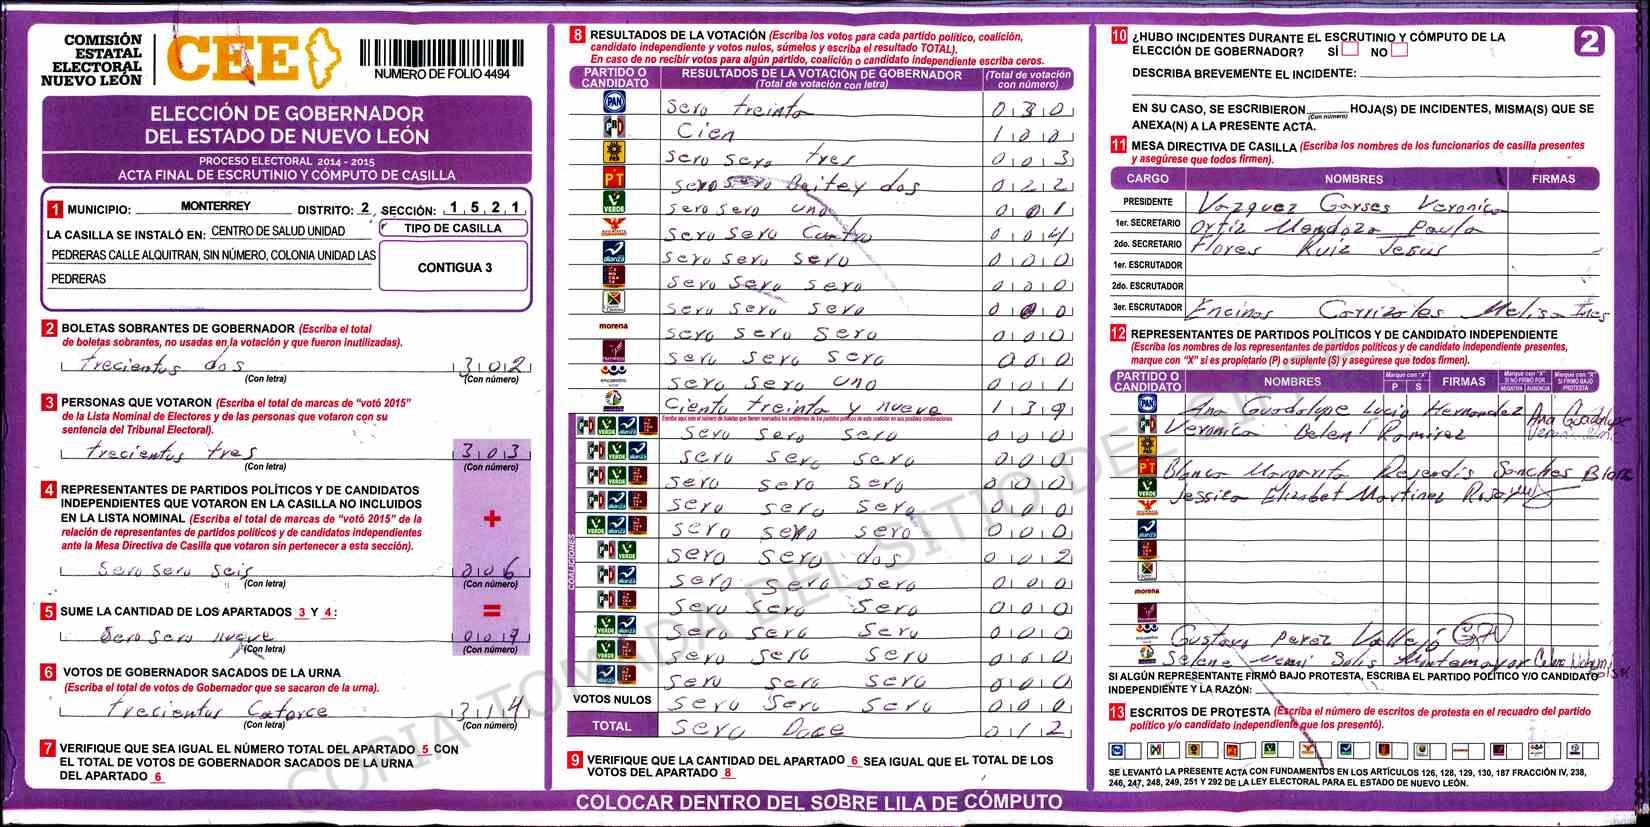 COMISIÓN
ESTATAL
ELECTORAL
NUEVO LEÓN
CEE
NÚMERO DE FOLIO 4494
ELECCIÓN DE GOBERNADOR
DEL ESTADO DE NUEVO LEÓN
PROCESO ELECTORAL 2014 - 2015
ACTA FINAL DE ESCRUTINIO Y CÓMPUTO DE CASILLA
1 MUNICIPIO: MONTERREY DISTRITO: 2 SECCIÓN: 1 5 2 1
LA CASILLA SE INSTALÓ EN: CENTRO DE SALUD UNIDAD
PEDRERAS CALLE ALQUITRAN, SIN NÚMERO, COLONIA UNIDAD LAS
PEDRERAS
TIPO DE CASILLA
CONTIGUA 3
2 BOLETAS SOBRANTES DE GOBERNADOR (Escriba el total
de boletas sobrantes, no usadas en la votación y que fueron inutilizadas).
trecientos dos 302
(Con letra) (Con número)
3 PERSONAS QUE VOTARON (Escriba el total de marcas de "votó 2015"
de la Lista Nominal de Electores y de las personas que votaron con su
sentencia del Tribunal Electoral).
trecientos tres 303
(Con letra) (Con número)
4 REPRESENTANTES DE PARTIDOS POLÍTICOS Y DE CANDIDATOS
INDEPENDIENTES QUE VOTARON EN LA CASILLA NO INCLUIDOS
EN LA LISTA NOMINAL (Escriba el total de marcas de "votó 2015" de la
relación de representantes de partidos políticos y de candidatos independientes
ante la Mesa Directiva de Casilla que votaron sin pertenecer a esta sección).
+
sero sero seis 006
(Con letra) (Con número)
5 SUME LA CANTIDAD DE LOS APARTADOS 3 Y 4:
=
sero sero nueve 009
(Con letra) (Con número)
6 VOTOS DE GOBERNADOR SACADOS DE LA URNA
(Escriba el total de votos de Gobernador que se sacaron de la urna).
trecientos Catorce 314
(Con letra) (Con número)
7 VERIFIQUE QUE SEA IGUAL EL NÚMERO TOTAL DEL APARTADO 5 CON
EL TOTAL DE VOTOS DE GOBERNADOR SACADOS DE LA URNA
DEL APARTADO 6
8 RESULTADOS DE LA VOTACIÓN (Escriba los votos para cada partido político, coalición,
candidato independiente y votos nulos, súmelos y escriba el resultado TOTAL).
En caso de no recibir votos para algún partido, coalición o candidato independiente escriba ceros.
PARTIDO O CANDIDATO
RESULTADOS DE LA VOTACIÓN DE GOBERNADOR
(Total de votación con letra)
(Total de votación con número)
PAN sero treinta 030
PRD Cien 100
sero sero tres 003
PT sero sero beitey dos 022
VERDE sero sero uno 001
sero sero Cuatro 004
alianza sero sero sero 000
sero sero sero 000
sero sero sero 000
morena sero sero sero 000
sero sero sero 000
encuentro sero sero uno 001
Ciento treinta y nueve 139
COALICIONES
sero sero sero 000
sero sero sero 000
sero sero sero 000
sero sero sero 000
sero sero sero 000
sero sero dos 002
sero sero sero 000
sero sero sero 000
sero sero sero 000
sero sero sero 000
sero sero sero 000
VOTOS NULOS sero sero sero 000
TOTAL sero Doce 012
9 VERIFIQUE QUE LA CANTIDAD DEL APARTADO 6 SEA IGUAL QUE EL TOTAL DE LOS
VOTOS DEL APARTADO 8
COLOCAR DENTRO DEL SOBRE LILA DE CÓMPUTO
2
10 ¿HUBO INCIDENTES DURANTE EL ESCRUTINIO Y CÓMPUTO DE LA
ELECCIÓN DE GOBERNADOR? SÍ NO
DESCRIBA BREVEMENTE EL INCIDENTE:
EN SU CASO, SE ESCRIBIERON HOJA(S) DE INCIDENTES, MISMA(S) QUE SE
(Con número)
ANEXA(N) A LA PRESENTE ACTA.
11 MESA DIRECTIVA DE CASILLA (Escriba los nombres de los funcionarios de casilla presentes
y asegúrese que todos firmen).
CARGO NOMBRES FIRMAS
PRESIDENTE Vazquez Garses Veronica
1er. SECRETARIO Ortiz Mendoza Paula
2do. SECRETARIO Flores Ruiz Jesus
1er. ESCRUTADOR
2do. ESCRUTADOR
3er. ESCRUTADOR Encinas Carrizales Melisa Ines
12 REPRESENTANTES DE PARTIDOS POLÍTICOS Y DE CANDIDATO INDEPENDIENTE
(Escriba los nombres de los representantes de partidos políticos y de candidato independiente presentes,
marque con "X" si es propietario (P) o suplente (S) y asegúrese que todos firmen).
PARTIDO O CANDIDATO
NOMBRES
Marque con "X"
P S
FIRMAS
Marque con "X" SI NO FIRMÓ POR
NEGATIVA AUSENCIA
Marque con "X" SI FIRMÓ BAJO PROTESTA
PAN Ana Guadalupe Lucio Hernandez Ana Guadalupe
Veronica Belen Ramirez
PT Blanca Margarita Sanches
VERDE Jessica Elizabet Martinez
morena
Gustavo Perez Vallejo
Selene Solis
SI ALGÚN REPRESENTANTE FIRMÓ BAJO PROTESTA, ESCRIBA EL PARTIDO POLÍTICO Y/O CANDIDATO
INDEPENDIENTE Y LA RAZÓN:
13 ESCRITOS DE PROTESTA (Escriba el número de escritos de protesta en el recuadro del partido
político y/o candidato independiente que los presentó).
SE LEVANTÓ LA PRESENTE ACTA CON FUNDAMENTOS EN LOS ARTÍCULOS 126, 128, 129, 130, 187 FRACCIÓN IV, 238,
246, 247, 248, 249, 251 Y 292 DE LA LEY ELECTORAL PARA EL ESTADO DE NUEVO LEÓN.
COPIA TOMADA DEL SITIO DEL